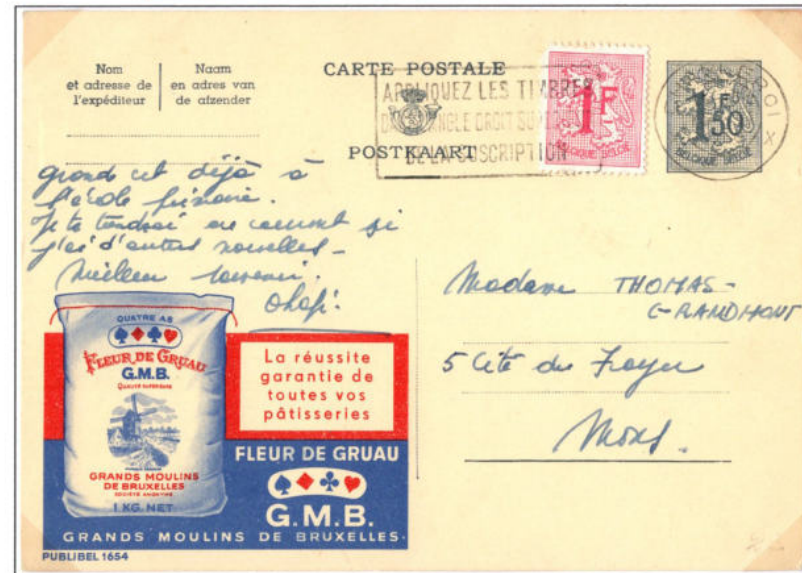 Nom
et adresse de
l'expéditeur
Naam
en adres van
de afzender
CARTE POSTALE
POSTKAART
APPLIQUEZ LES TIMBRES
ANGLE DROIT
DE LA SUSCRIPTION
1F
BELGIQUE BELGIE
1F50
BELGIQUE BELGIE
CHARLEROI X
grand est déjà à
l'école primaire.
Je te tiendrai au courant si
j'ai d'autres nouvelles -
Meilleur souvenir.
Madame THOMAS-
GRANDMONT
5 Cité du
Mons.
QUATRE AS
FLEUR DE GRUAU
G.M.B.
QUALITÉ SUPÉRIEURE
GRANDS MOULINS
DE BRUXELLES
SOCIÉTÉ ANONYME
1 KG. NET
La réussite
garantie de
toutes vos
pâtisseries
FLEUR DE GRUAU
G.M.B.
GRANDS MOULINS DE BRUXELLES
PUBLIBEL 1654